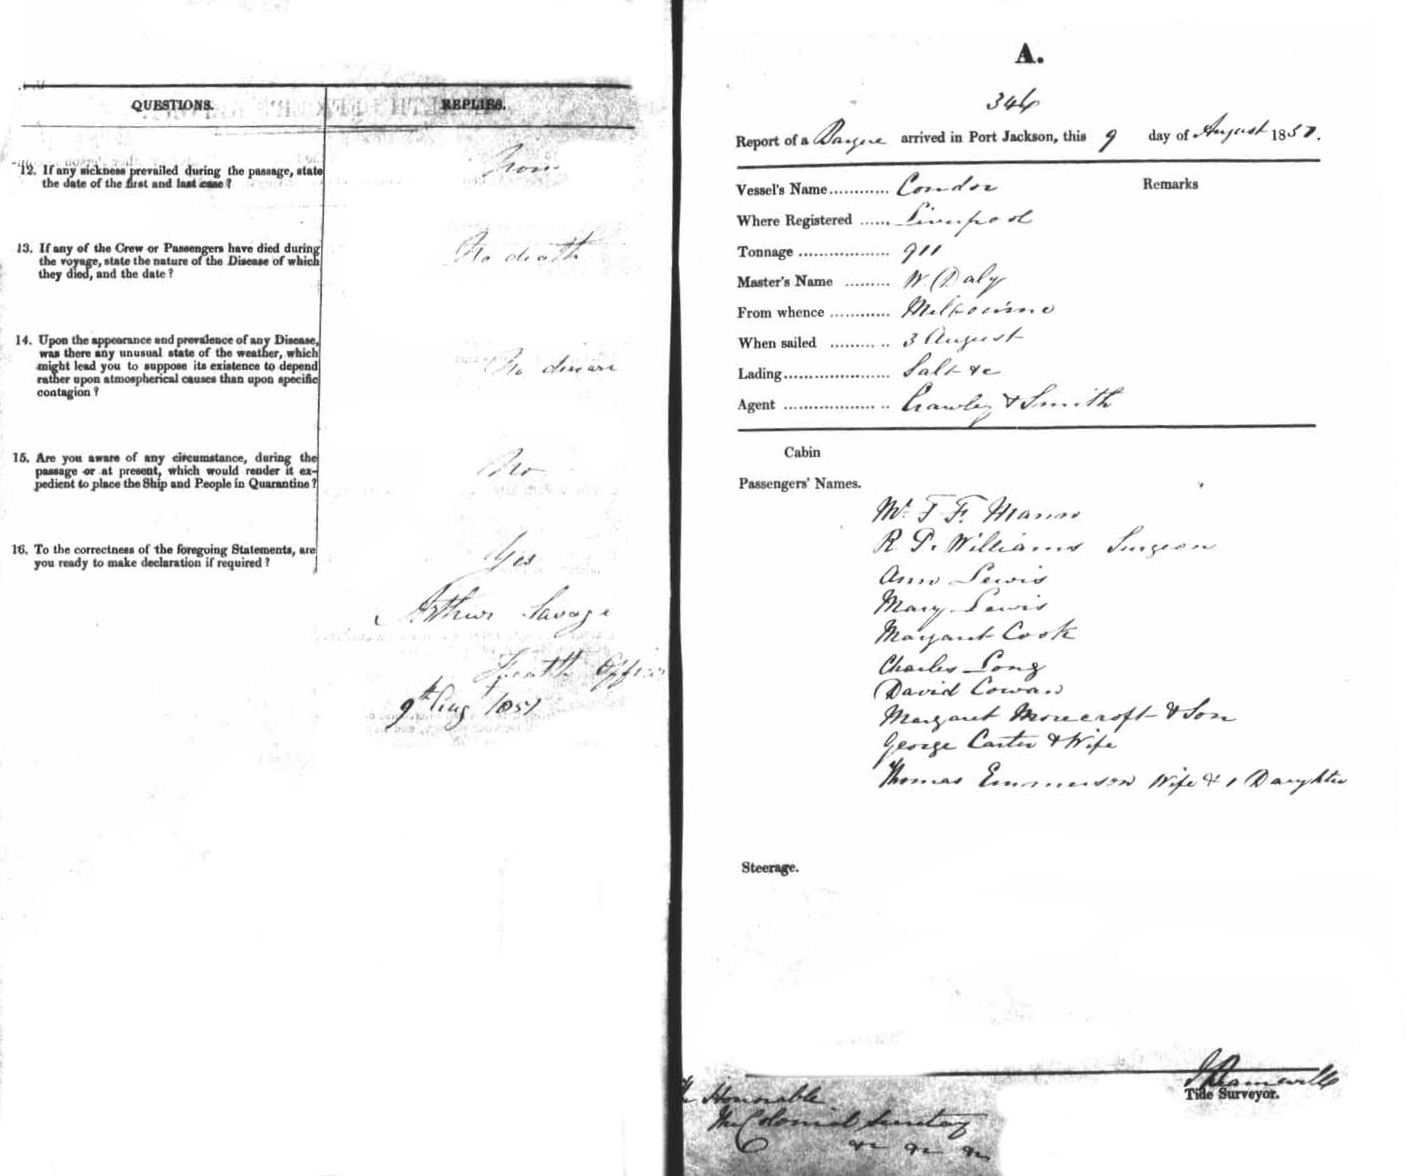 QUESTIONS. REPLIES.
12. If any sickness prevailed during the passage, state
the date of the first and last case?
None
13. If any of the Crew or Passengers have died during
the voyage, state the nature of the Disease of which
they died, and the date?
No death
14. Upon the appearance and prevalence of any Disease,
was there any unusual state of the weather, which
might lead you to suppose its existence to depend
rather upon atmospherical causes than upon specific
contagion?
No disease
15. Are you aware of any circumstance, during the
passage or at present, which would render it ex-
pedient to place the Ship and People in Quarantine?
No
16. To the correctness of the foregoing Statements, are
you ready to make declaration if required?
Yes
Arthur Savage
Health Officer
9th Aug 1857
A.
344
Report of a Barque arrived in Port Jackson, this 9 day of August 1857.
Vessel's Name............ Condor Remarks
Where Registered ...... Liverpool
Tonnage .................. 911
Master's Name ......... W. Daly
From whence ............ Melbourne
When sailed ......... .. 3 August
Lading..................... Salt &c
Agent .................. .. Crawley & Smith
Cabin
Passengers' Names.
Mr. F. F. Mann
R P. Williams Surgeon
Ann Lewis
Mary Lewis
Margaret Cook
Charles Long
David Cowan
Margaret Morecroft & Son
George Carter & Wife
Thomas Emmerson Wife & 1 Daughter
Steerage.
Tide Surveyor.
The Honorable
The Colonial Secretary
&c &c &c